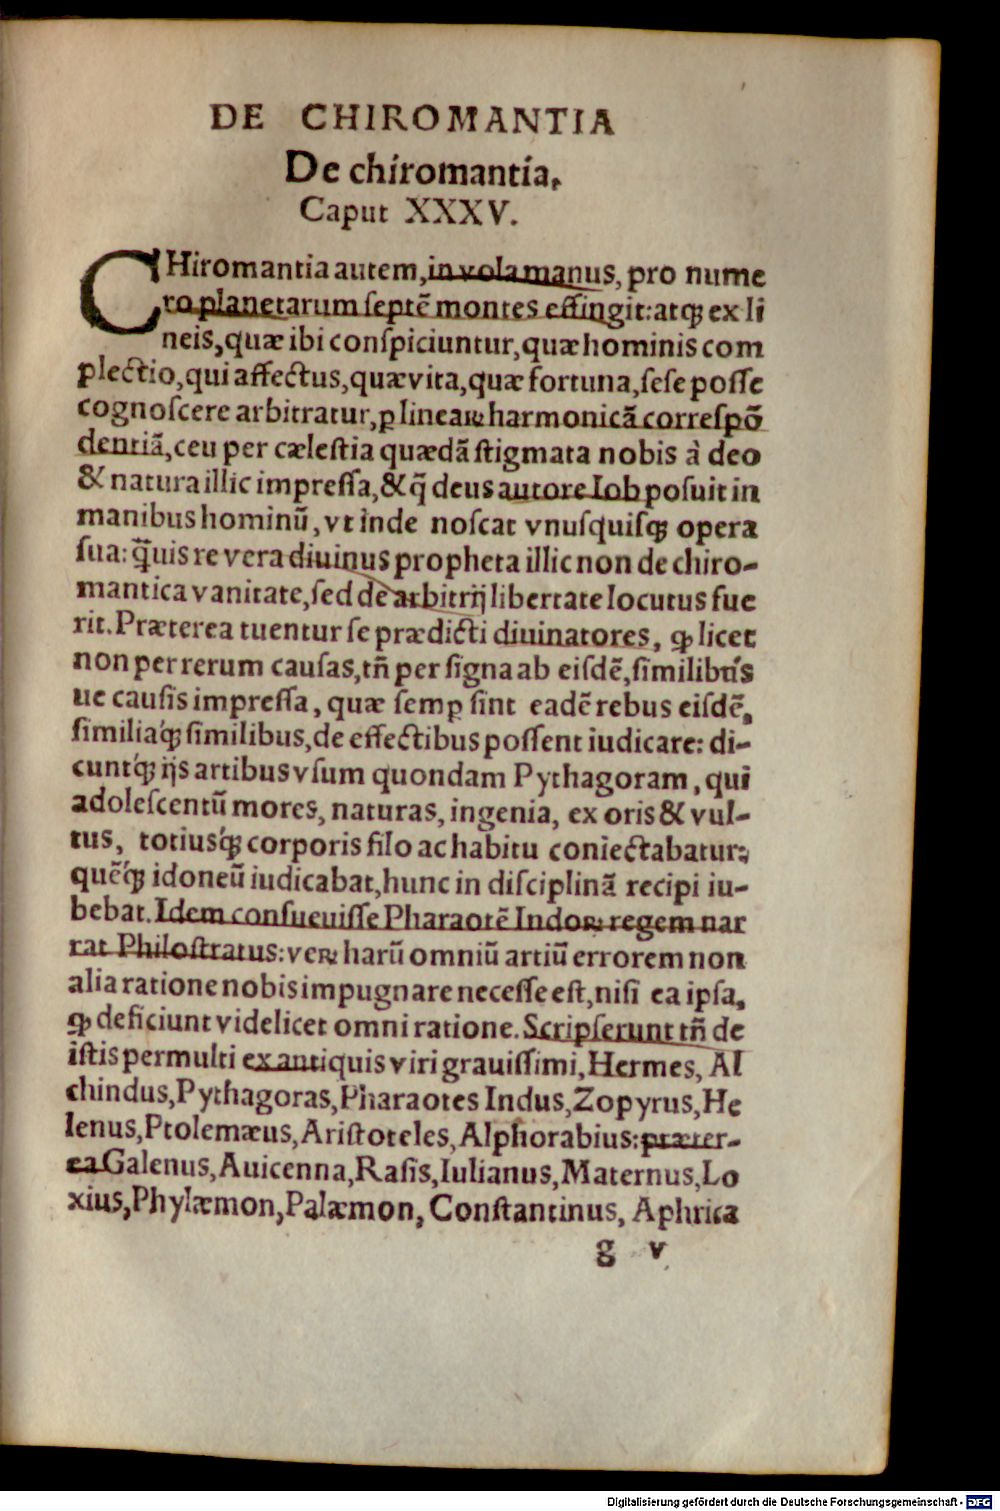 DE CHIROMANTIA
De chiromantia.
Caput XXXV.
CHiromantia autem, in vola manus, pro nume
ro planetarum ſeptē montes effingit: atqꝫ ex li
neis, quæ ibi conſpiciuntur, quæ hominis com
plectio, qui affectus, quæ vita, quæ fortuna, ſeſe poſſe
cognoſcere arbitratur, ꝑ lineaꝝ harmonicā correſpō
dentiā, ceu per cæleſtia quædā ſtigmata nobis à deo
& natura illic impreſſa, & q̄ deus autore Iob poſuit in
manibus hominū, vt inde noſcat vnuſquiſqꝫ opera
ſua: q̄uis re vera diuinus propheta illic non de chiro-
mantica vanitate, ſed de arbitrij libertate locutus fue
rit. Præterea tuentur ſe prædicti diuinatores, ꝙ licet
non per rerum cauſas, tñ per ſigna ab eiſdē, ſimilibuſ
ue cauſis impreſſa, quæ ſemꝑ ſint eadē rebus eiſdē,
ſimiliaqꝫ́ ſimilibus, de effectibus poſſent iudicare: di-
cuntqꝫ́ ijs artibus vſum quondam Pythagoram, qui
adoleſcentū mores, naturas, ingenia, ex oris & vul-
tus, totiusqꝫ́ corporis filo ac habitu coniectabatur:
quēqꝫ́ idoneū iudicabat, hunc in diſciplinā recipi iu-
bebat. Idem conſueuiſſe Pharaotē Indoꝝ regem nar
rat Philoſtratus: veꝝ harū omniū artiū errorem non
alia ratione nobis impugnare neceſſe eſt, niſi ea ipſa,
ꝙ deficiunt videlicet omni ratione. Scripſerunt tñ de
iſtis permulti ex antiquis viri grauiſſimi, Hermes, Al
chindus, Pythagoras, Pharaotes Indus, Zopyrus, He
lenus, Ptolemæus, Ariſtoteles, Alphorabius: præter-
ea Galenus, Auicenna, Raſis, Iulianus, Maternus, Lo
xius, Phylæmon, Palæmon, Conſtantinus, Aphrica
g v
Digitalisierung gefördert durch die Deutsche Forschungsgemeinschaft - DFG